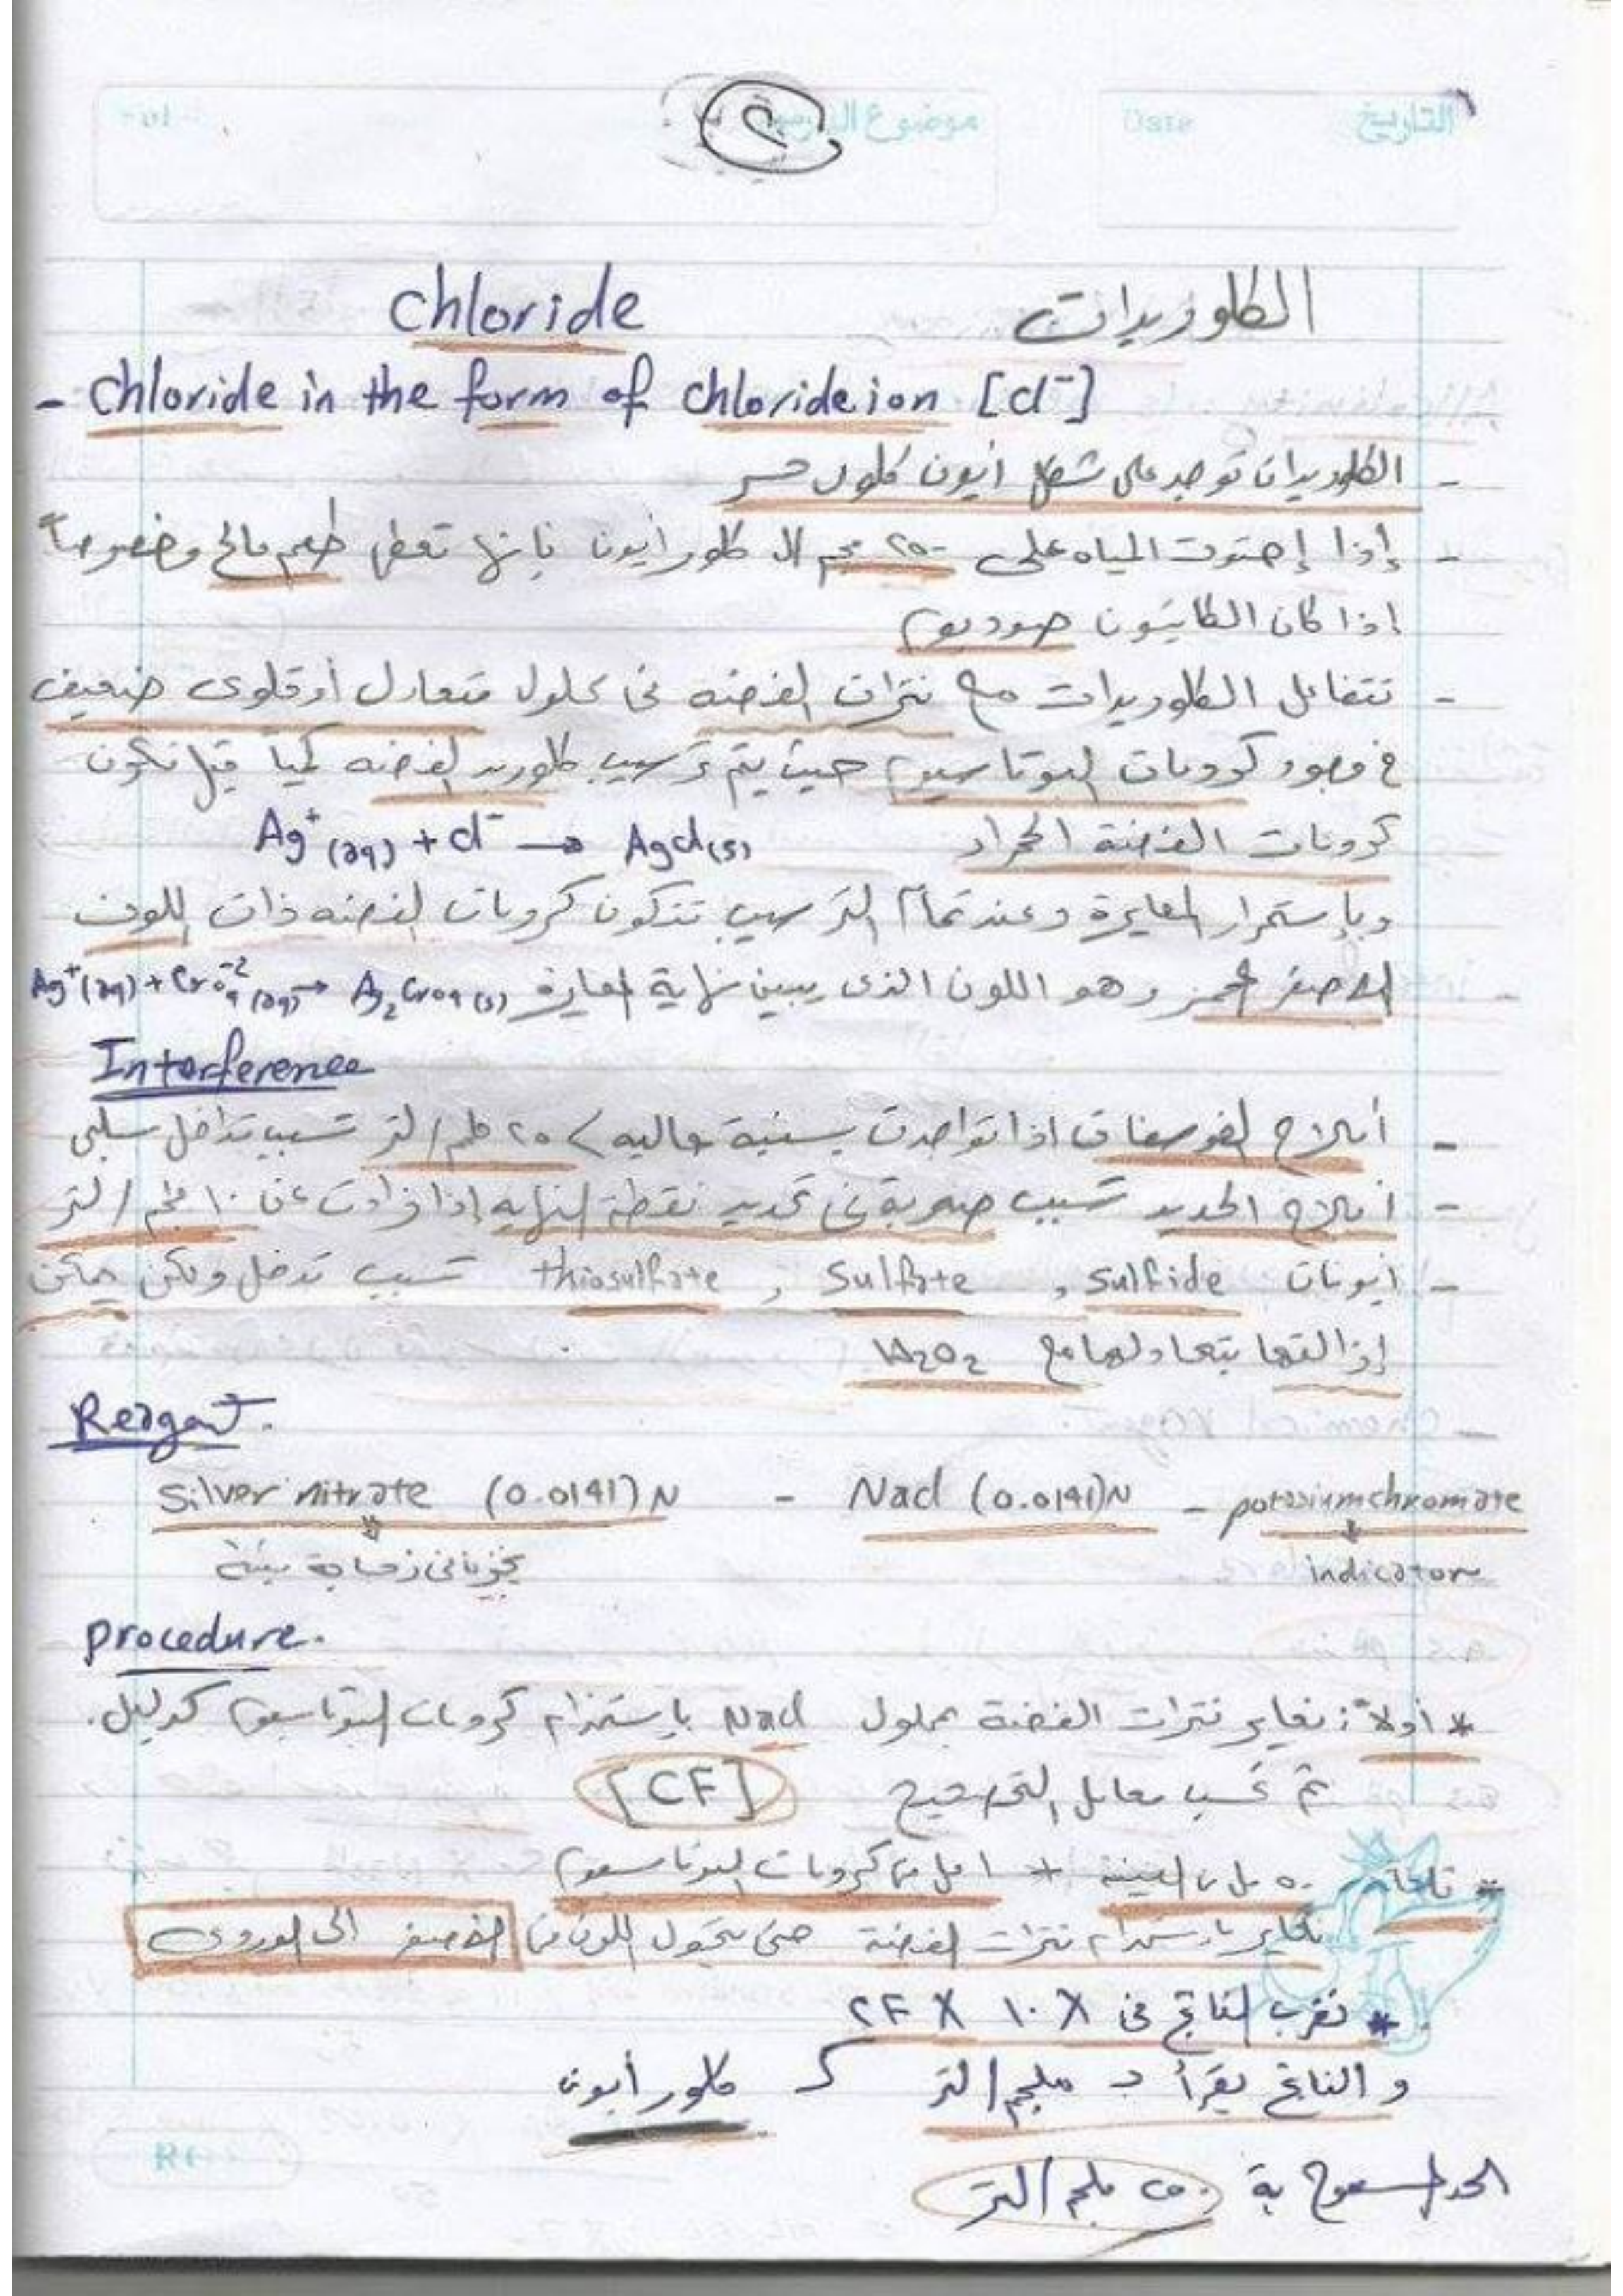 التاريخ Date موضوع الدرس
٢
chloride الكلوريدات
- Chloride in the form of chloride ion [Cl⁻]
- الكلوريدات توجد على شكل أيون كلور حر
- إذا إحتوت المياه على ٢٥٠ مجم ال كلور أيون فإنها تعطى طعم مالح وخصوصاً
إذا كان الكاتيون صوديوم
- تتفاعل الكلوريدات مع نترات الفضه فى محلول متعادل أو قلوى ضعيف
فى وجود كرومات البوتاسيوم حيث يتم ترسيب كلوريد الفضه كمياً قبل تكون
كرومات الفضة الحمراء Ag⁺(aq) + Cl⁻ → AgCl(s)
وبإستمرار المعايرة وعند تمام الترسيب تتكون كرومات الفضه ذات اللون
الاصفر المحمر وهو اللون الذى يبين نهاية المعايرة Ag⁺(aq) + CrO₄⁻²(aq) → Ag₂CrO₄(s)
Interference
- أملاح الفوسفات اذا تواجدت بنسبة عاليه > ٢٥ ملجم/لتر تسبب تداخل سلبى
- أملاح الحديد تسبب صعوبة فى تحديد نقطة النهايه إذا زادت عن ١٠ ملجم/لتر
- ايونات sulfide , Sulfate , thiosulfate تسبب تدخل ولكن يمكن
إزالتها بتعادلها مع H₂O₂
Reagent.
Silver nitrate (0.0141) N - NaCl (0.0141) N - potassium chromate
يخزنا فى زجاجة بنية indicator
procedure.
* أولاً: نعاير نترات الفضة بمحلول NaCl بإستخدام كرومات البوتاسيوم كدليل.
ثم نحسب معامل التصحيح [CF]
* ٥٠ مل من العينة + ١ مل من كرومات البوتاسيوم
نعاير باستخدام نترات الفضة حتى يتحول اللون من الأصفر الى الوردى
* نضرب الناتج فى X ١٠ X CF
و الناتج يقرأ د ملجم/لتر ك كلور أيون
الحد المسموح بة ٢٥٠ ملجم/لتر